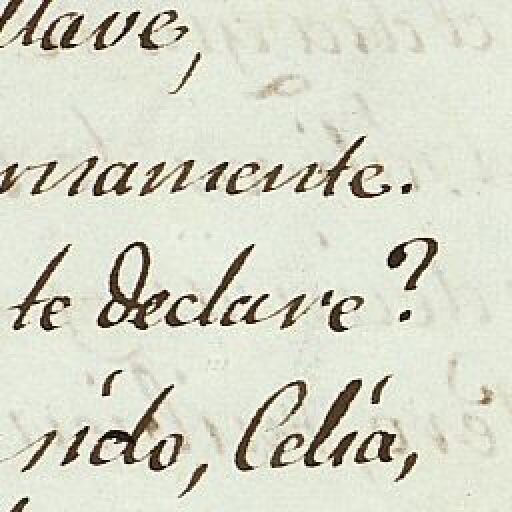 llave,
rnamente.
te declare?
nido, Celia,